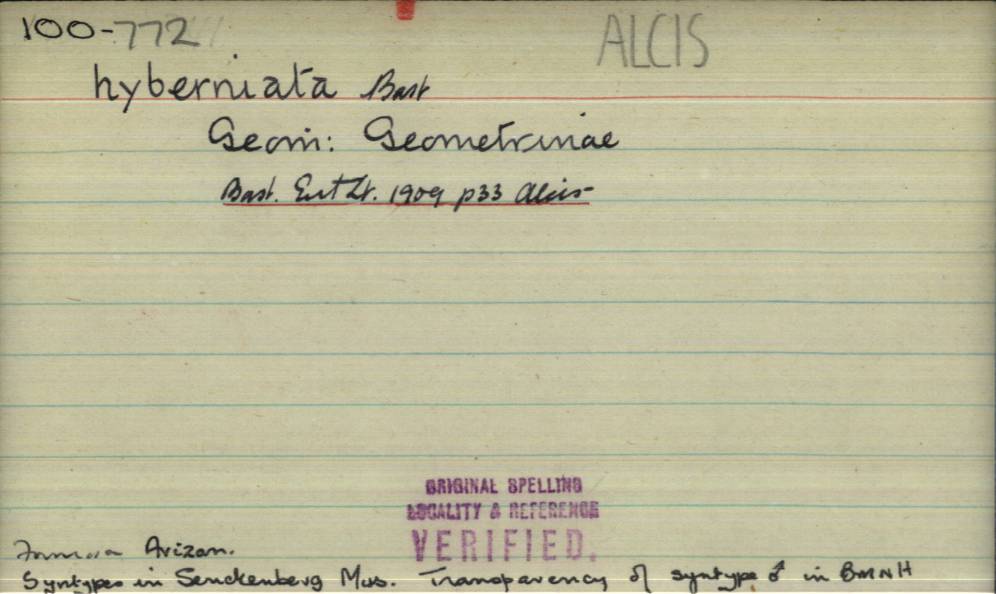 100-772
ALCIS
hyberniata Bast
Geom: Geometrinae
Bast. Ent Zt. 1909 p33 Alcis
ORIGINAL SPELLING
LOCALITY & REFERENCE
VERIFIED.
Formosa Arizan.
Syntypes in Senckenberg Mus. Transparency of syntype ♂ in BMNH